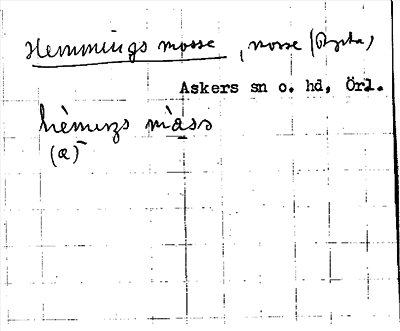 Hemmings mosse, mosse (Ryta)
Askers sn o. hd, Örl.
hèmiŋs màss
(æ)